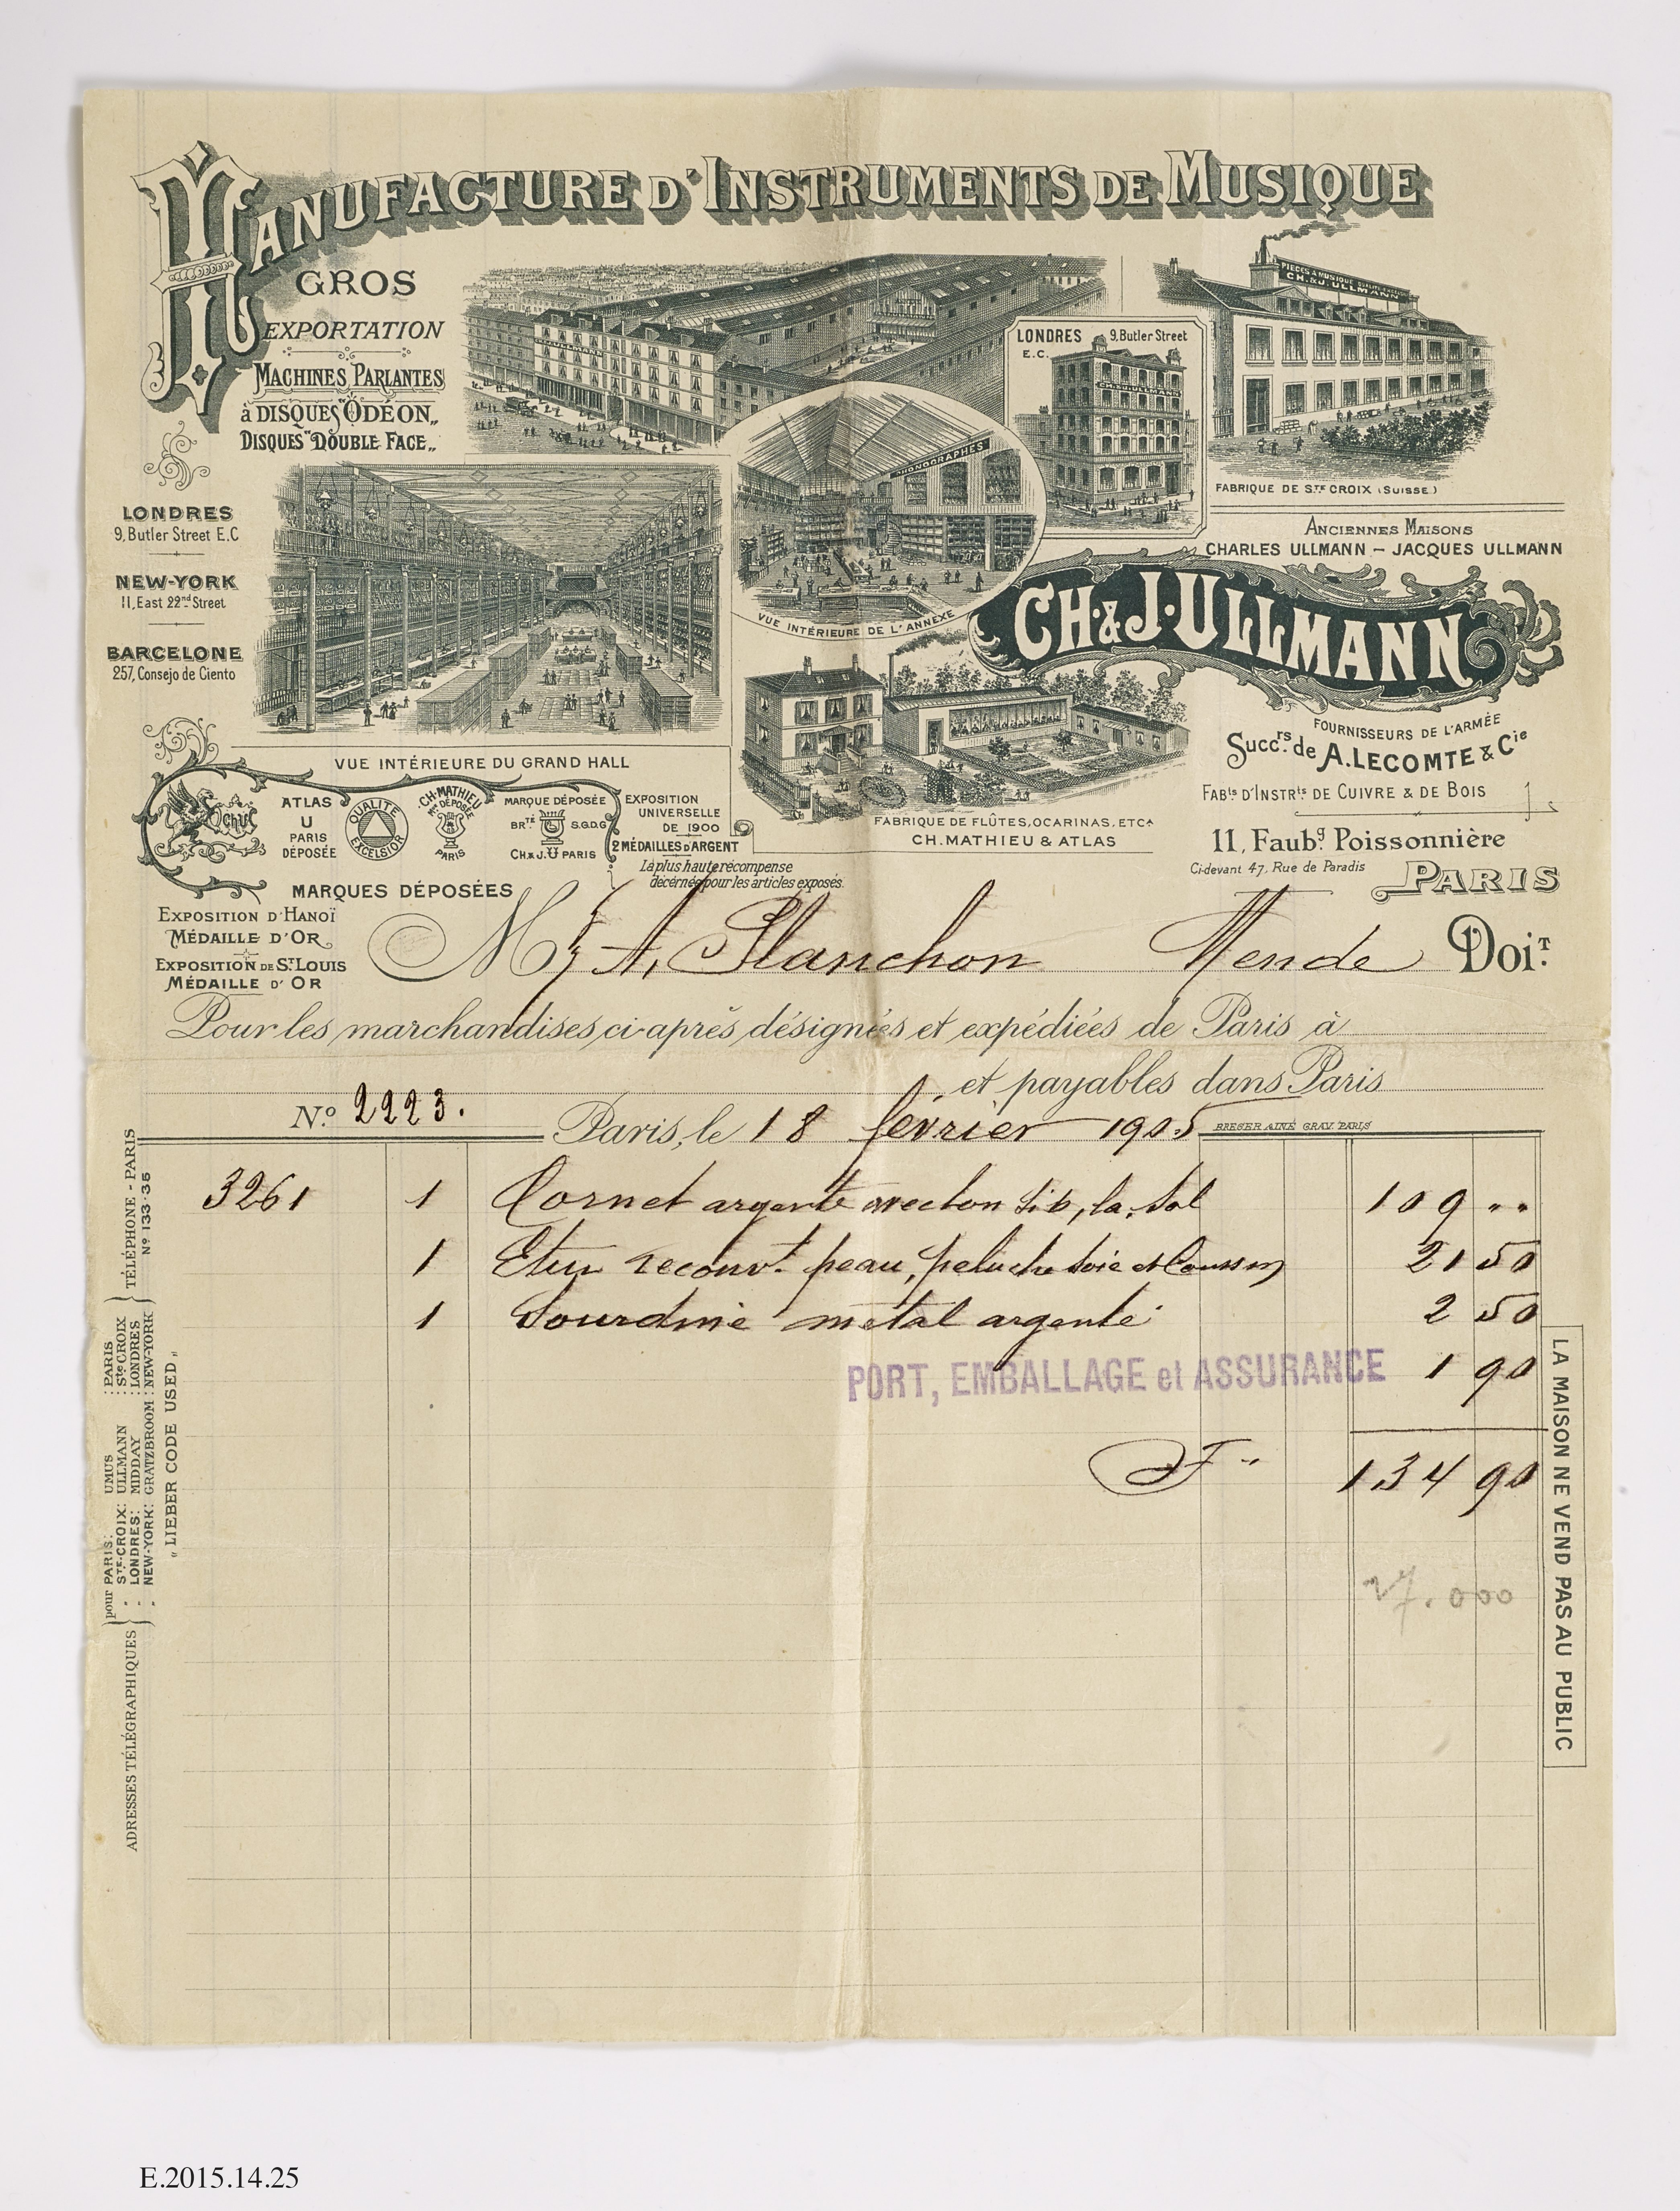 MANUFACTURE D'INSTRUMENTS DE MUSIQUE
GROS
EXPORTATION
MACHINES PARLANTES
à DISQUES "ODÉON"
DISQUES "DOUBLE FACE"
LONDRES
9, Butler Street E.C
NEW-YORK
11, East 22nd Street
BARCELONE
257, Consejo de Ciento
PHONOGRAPHES
VUE INTÉRIEURE DE L'ANNEXE
LONDRES 9, Butler Street
E.C.
PIECES A MUSIQUE
CH. & J. ULLMANN
FABRIQUE DE STE CROIX (SUISSE)
ANCIENNES MAISONS
CHARLES ULLMANN – JACQUES ULLMANN
CH. & J. ULLMANN
FOURNISSEURS DE L'ARMÉE
Succrs de A. LECOMTE & Cie
FABts D'INSTRts DE CUIVRE & DE BOIS
11, Faubg Poissonnière
Ci-devant 47, Rue de Paradis
PARIS
VUE INTÉRIEURE DU GRAND HALL
FABRIQUE DE FLÛTES, OCARINAS, ETCA
CH. MATHIEU & ATLAS
ChUC
ATLAS
U
PARIS
DÉPOSÉE
QUALITÉ
EXCELSIOR
CH. MATHIEU
MQUE DÉPOSÉE
PARIS
MARQUE DÉPOSÉE
BRTÉ S.G.D.G
CH. & J. U PARIS
EXPOSITION
UNIVERSELLE
DE 1900
2 MÉDAILLES D'ARGENT
La plus haute récompense
décernée pour les articles exposés.
MARQUES DÉPOSÉES
EXPOSITION D'HANOÏ
MÉDAILLE D'OR
EXPOSITION DE ST LOUIS
MÉDAILLE D'OR
Mr A. Planchon Mende DOIT
Pour les marchandises ci-après désignées et expédiées de Paris à
et payables dans Paris
No 2223.
Paris, le 18 février 1905
BREGER AINÉ GRAV. PARIS
3261 1 Cornet argenté avec ton sib, la, sol 109 ""
1 Etui recouvt peau, peluche soie et Coussin 21 50
1 Sourdine métal argenté 2 50
PORT, EMBALLAGE et ASSURANCE 1 90
F" 134 90
27.000
LA MAISON NE VEND PAS AU PUBLIC
TÉLÉPHONE - PARIS
No 133-35
ADRESSES TÉLÉGRAPHIQUES
pour PARIS: UMUS : PARIS
" STE-CROIX: ULLMANN : Ste CROIX
" LONDRES: MIDDAY : LONDRES
" NEW-YORK: GRATZBROOM : NEW-YORK
"LIEBER CODE USED"
E.2015.14.25